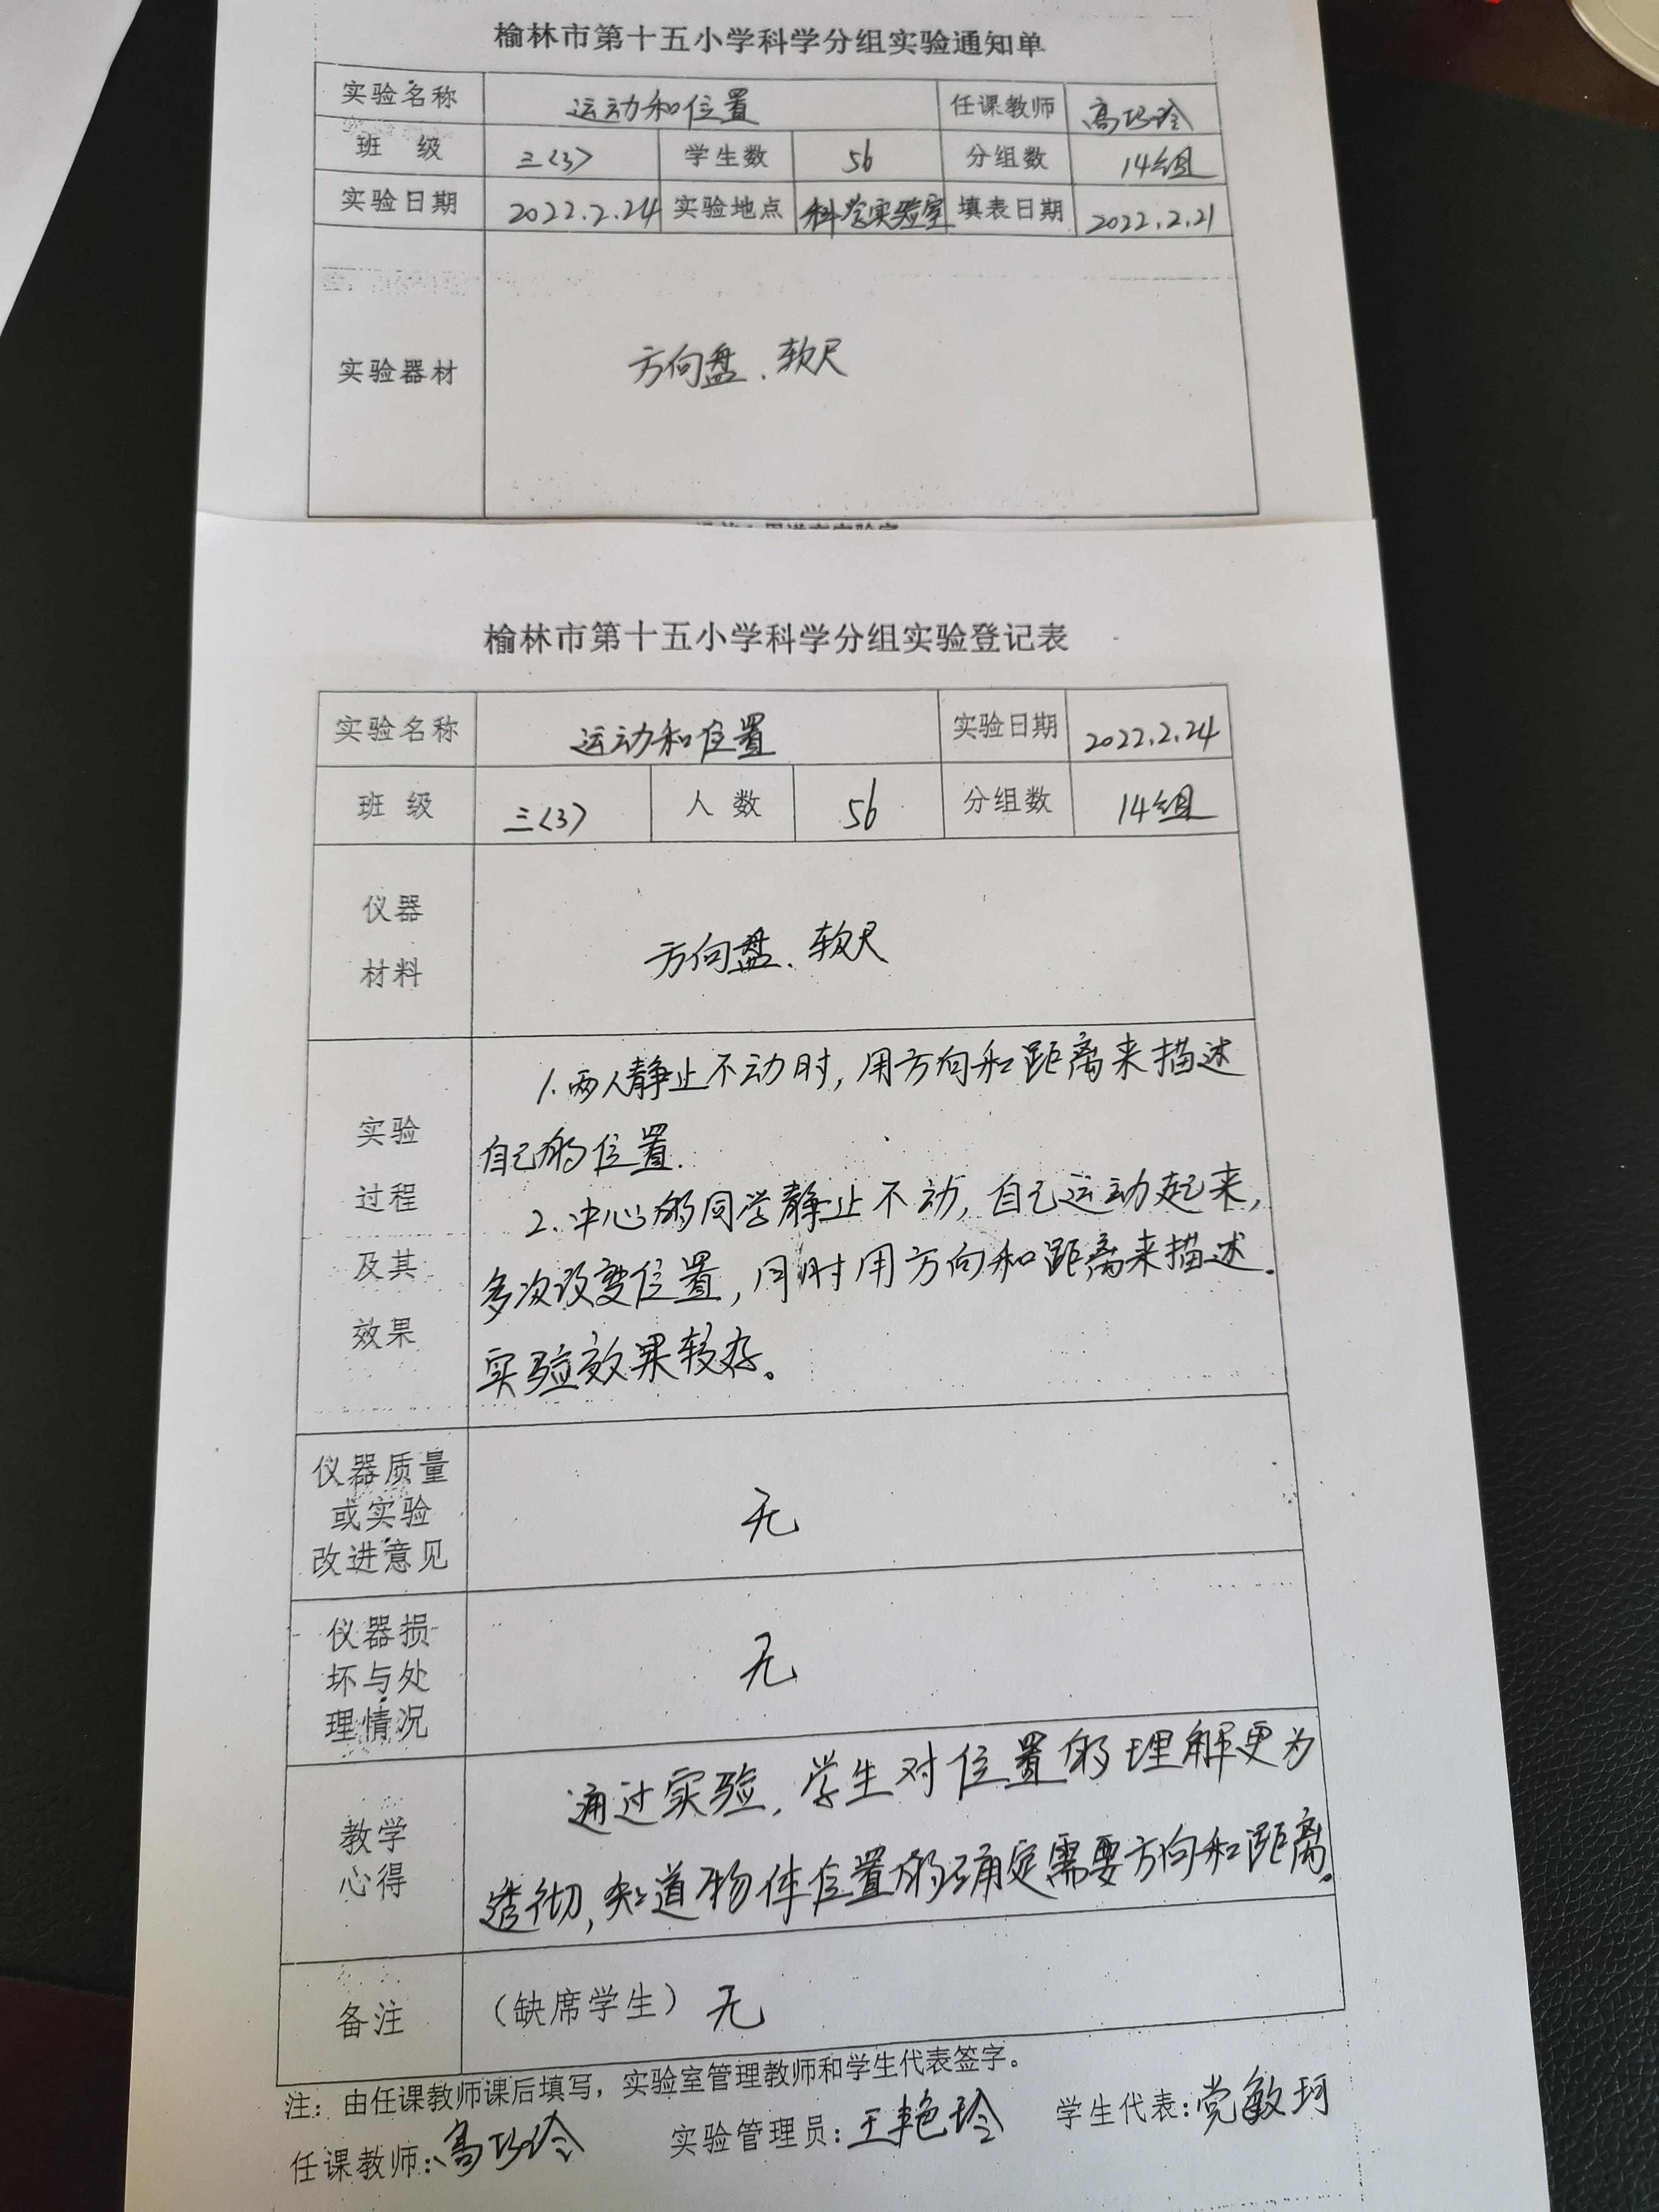 榆林市第十五小学科学分组实验通知单
实验名称 运动和位置 任课教师 高巧玲
班 级 三(3) 学生数 56 分组数 14组
实验日期 2022.2.24 实验地点 科学实验室 填表日期 2022.2.21
实验器材 方向盘、软尺
榆林市第十五小学科学分组实验登记表
实验名称 运动和位置 实验日期 2022.2.24
班 级 三(3) 人 数 56 分组数 14组
仪器
材料
方向盘、软尺
实验
过程
及其
效果
1.两人静止不动时,用方向和距离来描述
自己的位置.
2.中心的同学静止不动,自己运动起来,
多次改变位置,同时用方向和距离来描述.
实验效果较好。
仪器质量
或实验
改进意见
无
仪器损
坏与处
理情况
无
教学
心得
通过实验,学生对位置的理解更为
透彻,知道物体位置的确定需要方向和距离.
备注 (缺席学生) 无
注:由任课教师课后填写,实验室管理教师和学生代表签字。
任课教师:高巧玲 实验管理员:王艳玲 学生代表:党敏珂